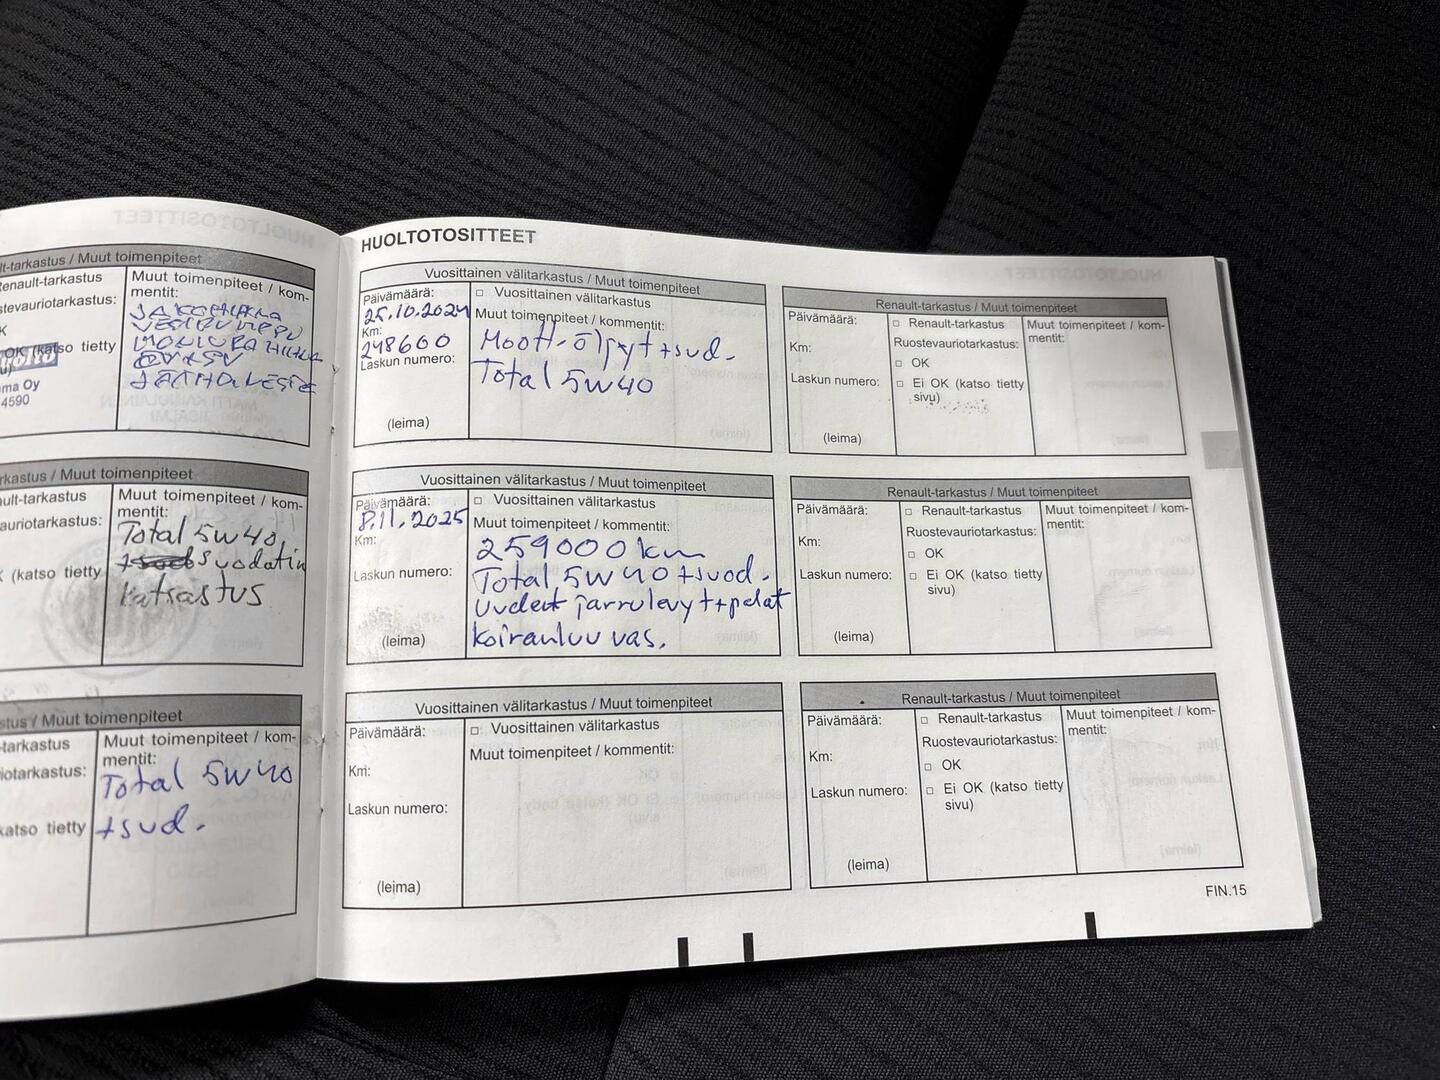 lt-tarkastus / Muut toimenpiteet
Renault-tarkastus
stevauriotarkastus:
K
OK (katso tietty
u)
ma Oy
4590
Muut toimenpiteet / kom-
mentit:
JAKOHIHNA
VESIPUMPPU
MONIURAHIHNA
JÄÄHD.VESTE
rkastus / Muut toimenpiteet
ault-tarkastus
auriotarkastus:
K (katso tietty
Muut toimenpiteet / kom-
mentit:
Total 5w40,
suodatin
katsastus
stus / Muut toimenpiteet
-tarkastus
iotarkastus:
katso tietty
Muut toimenpiteet / kom-
mentit:
Total 5w40
+sud.
HUOLTOTOSITTEET
Vuosittainen välitarkastus / Muut toimenpiteet
Päivämäärä:
25.10.2024
Km:
248600
Laskun numero:
(leima)
□ Vuosittainen välitarkastus
Muut toimenpiteet / kommentit:
Moott-ölpyt+sud.
Total 5w40
Renault-tarkastus / Muut toimenpiteet
Päivämäärä:
Km:
Laskun numero:
(leima)
□ Renault-tarkastus
Ruostevauriotarkastus:
□ OK
□ Ei OK (katso tietty
sivu)
Muut toimenpiteet / kom-
mentit:
Vuosittainen välitarkastus / Muut toimenpiteet
Päivämäärä:
8.11.2025
Km:
Laskun numero:
(leima)
□ Vuosittainen välitarkastus
Muut toimenpiteet / kommentit:
259000km
Total 5W40+suod.
Uudet jarrulevyt+palat
koiranluuvas.
Renault-tarkastus / Muut toimenpiteet
Päivämäärä:
Km:
Laskun numero:
(leima)
□ Renault-tarkastus
Ruostevauriotarkastus:
□ OK
□ Ei OK (katso tietty
sivu)
Muut toimenpiteet / kom-
mentit:
Vuosittainen välitarkastus / Muut toimenpiteet
Päivämäärä:
Km:
Laskun numero:
(leima)
□ Vuosittainen välitarkastus
Muut toimenpiteet / kommentit:
Renault-tarkastus / Muut toimenpiteet
Päivämäärä:
Km:
Laskun numero:
(leima)
□ Renault-tarkastus
Ruostevauriotarkastus:
□ OK
□ Ei OK (katso tietty
sivu)
Muut toimenpiteet / kom-
mentit:
FIN.15